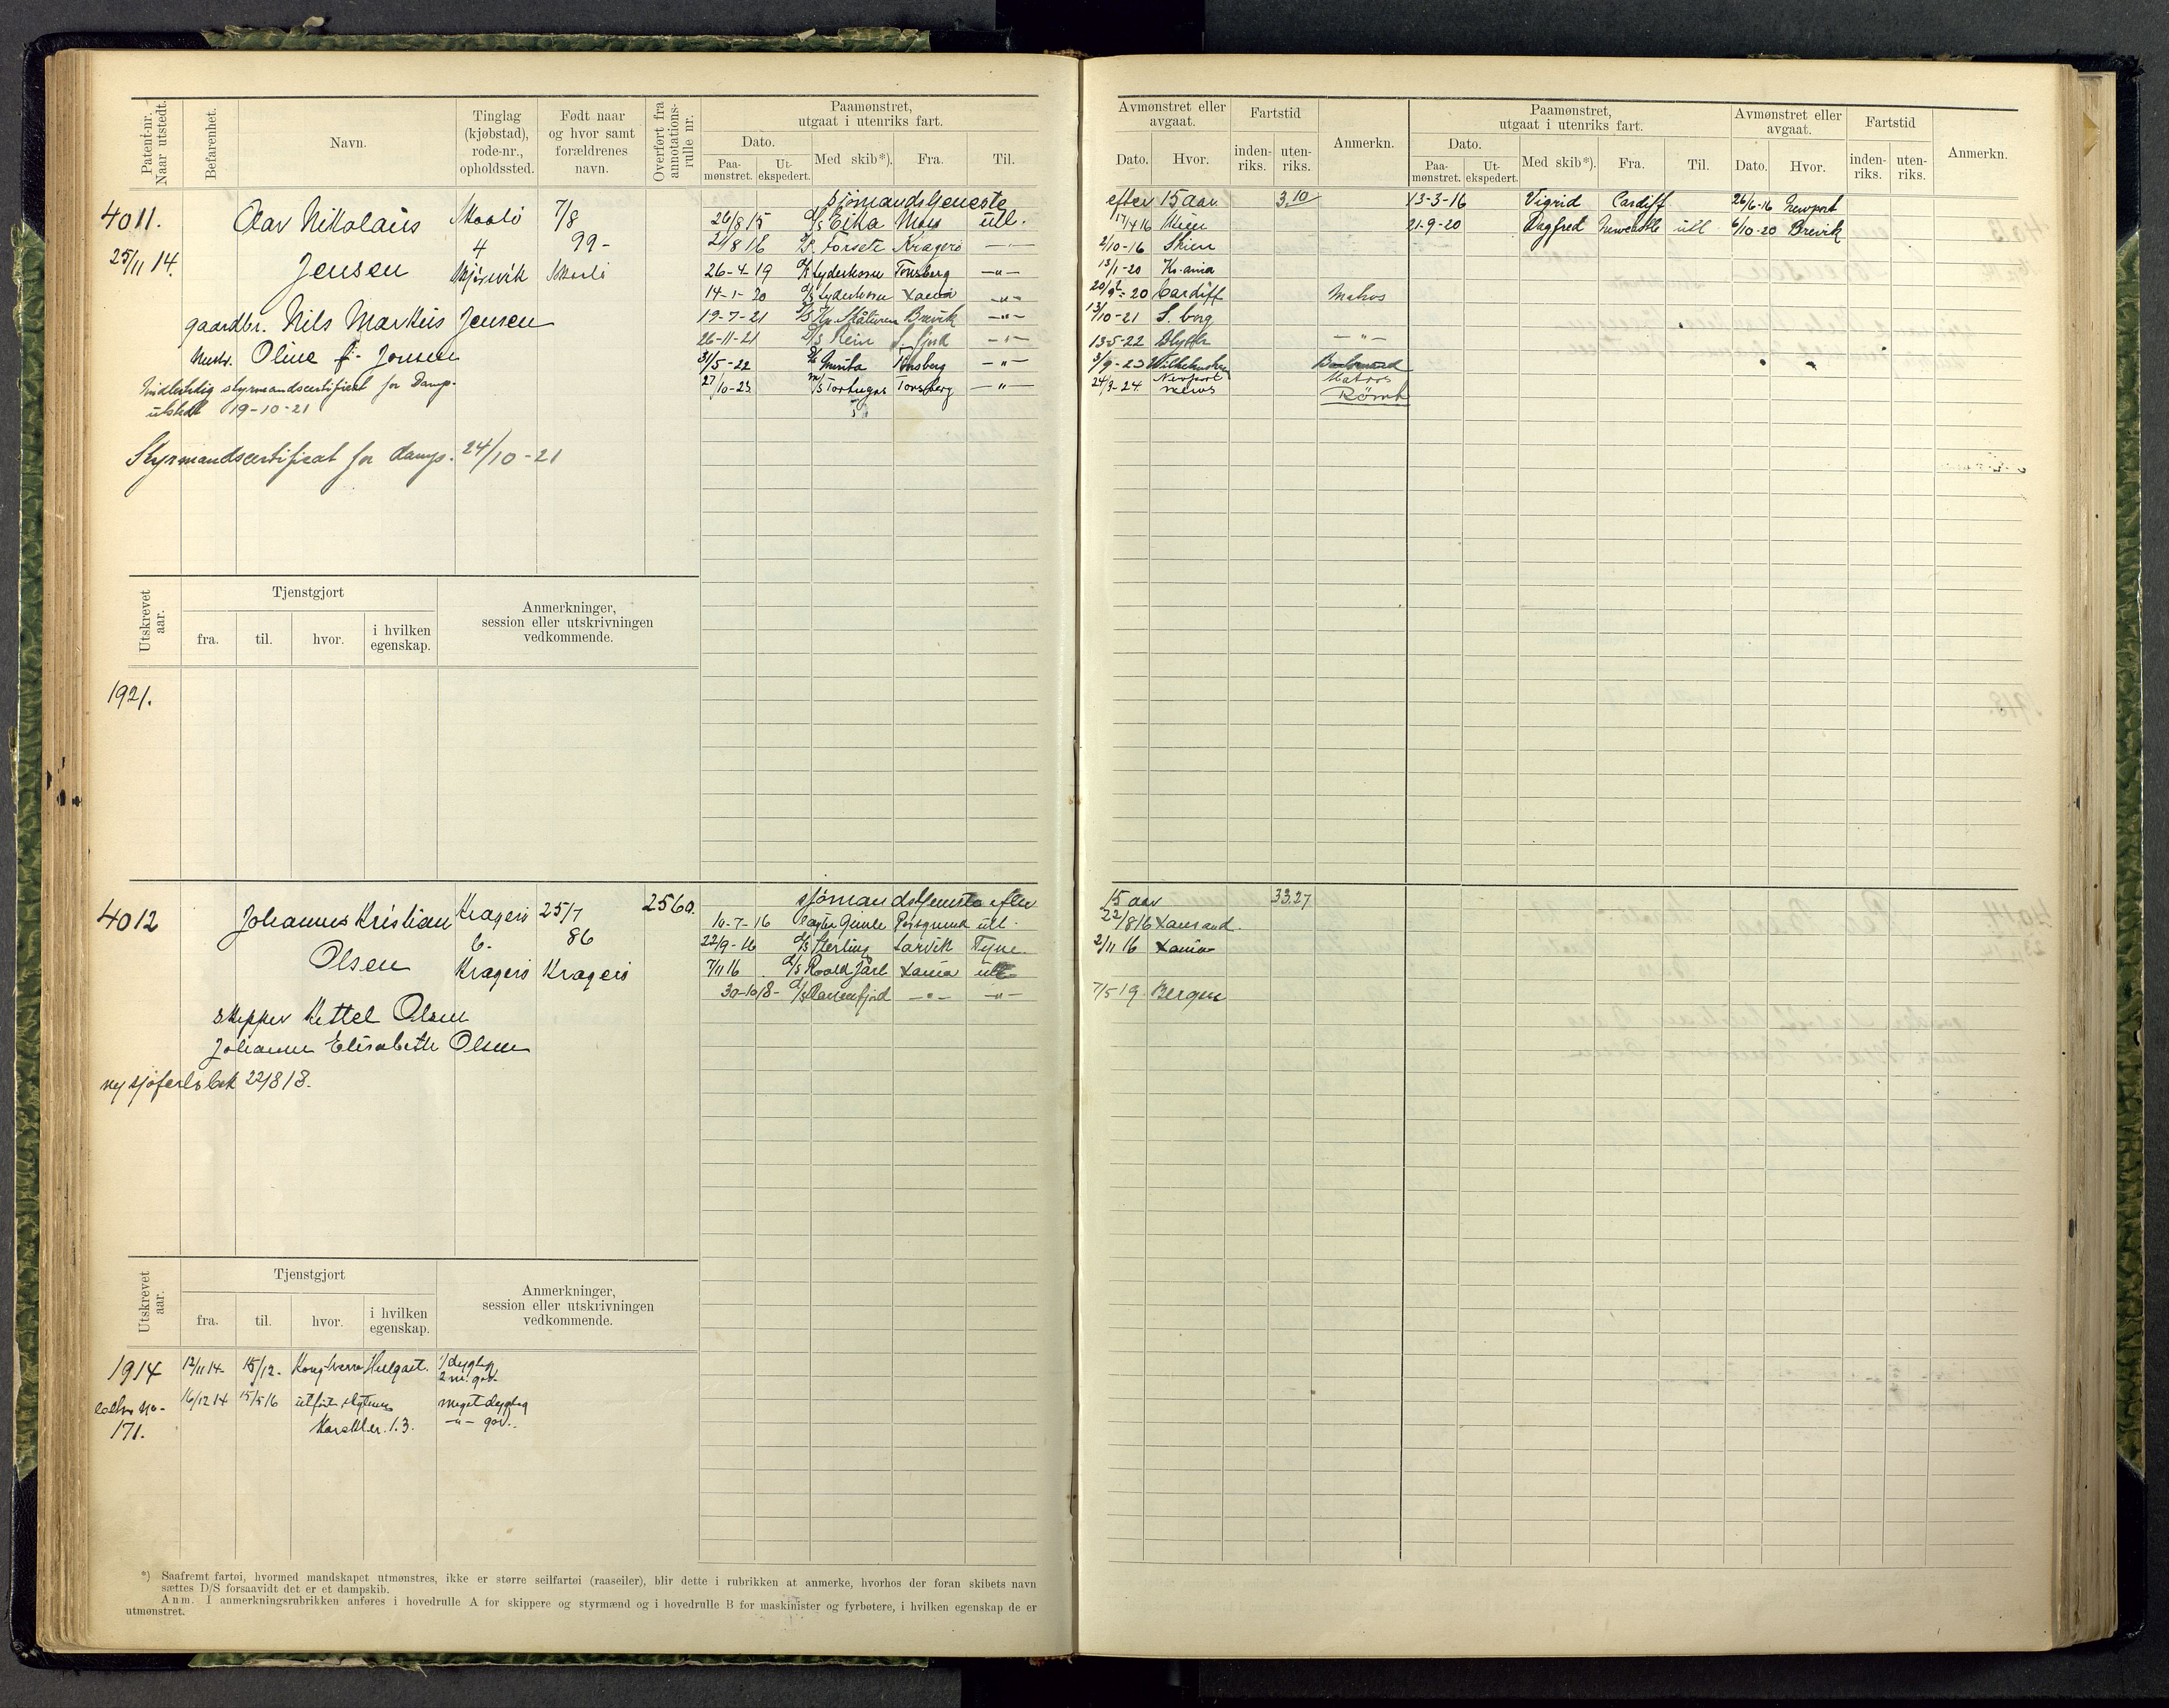 Patent-nr. Naar utstedt.
Befarenhet.
Navn.
Tinglag (kjøbstad), rode-nr., opholdssted.
Født naar og hvor samt forældrenes navn.
Overført fra annotations-rulle nr.
Paamønstret, utgaat i utenriks fart.
Dato.
Paa-mønstret.
Ut-ekspedert.
Med skib*).
Fra.
Til.
Avmønstret eller avgaat.
Dato.
Hvor.
Fartstid
inden-riks.
uten-riks.
Anmerkn.
Paamønstret, utgaat i utenriks fart.
Dato.
Paa-mønstret.
Ut-ekspedert.
Med skib*).
Fra.
Til.
Avmønstret eller avgaat.
Dato.
Hvor.
Fartstid
inden-riks.
uten-riks.
Anmerkn.
4011.
25/11 14.
Olav Nikolaus
Jensen
Skaalö
4
7/8
99-
Skaalö
gaardbr. Nils Markus Jensen
Hustr. Oline f. Jonsen
Midlertidig styrmandscertifikat for Damp.
utstedt 19-10-21
Styrmandscertificat for damp. 24/10-21
sjömandstjeneste efter 15 aar 3.10
26/8 15 d/s Eika Moss utl. 17/1 16 Skien
21/8 16 d/s Forsete Kragerö —"— 2/10-16 Skien
26-4-19 d/s Lyderhorn Tönsberg —"— 13/1-20 Kr.ania
14-1-20 d/s Lyderhorn Xania —"— 20-20 Cardiff Matros
19-7-21 Brevik —"— 13/10-21 S. borg
26-11-21 d/s Rein S. fjord —"— 13-5-22 Blyth —"—
31/5-22 Tönsberg —"— 3/9-23
27/10-23 m/s Tortugas Tönsberg —"— 24/3-24 Newport News Matros
Römt
13-3-16 Vigrid Cardiff 26/6-16 Newport
21-9-20 Dagfred Newcastle utl 6/10-20 Brevik
Utskrevet aar.
Tjenstgjort
fra.
til.
hvor.
i hvilken egenskap.
Anmerkninger, session eller utskrivningen vedkommende.
1921.
4012
Johannes Kristian
Olsen
Kragerö
6.
Kragerö
25/7
86
Kragerö
2560.
skipper Kittel Olsen
Johanne Elisabeth Olsen
ny sjöfartsbok 22/8 18.
sjömandstjeneste efter 15 aar 33.27
10-7-16 Gimle Porsgrund utl. 22/8 16 Xansand.
22/9-16 d/s Sterling Larvik Tyne. 2/11 16 Xania
7/11 16 d/s Roald Jarl Xania utl
30-10 18- d/s Ranenfjord —"— —"— 7/5 19 Bergen
Utskrevet aar.
Tjenstgjort
fra.
til.
hvor.
i hvilken egenskap.
Anmerkninger, session eller utskrivningen vedkommende.
1914 12/11 14- 15/12. 1/dygtig
2 m. god.
16/12 14 15/5 16 meget dygtig
171. Karakter. 1.3. —"— god.
*) Saafremt fartøi, hvormed mandskapet utmønstres, ikke er større seilfartøi (raaseiler), blir dette i rubrikken at anmerke, hvorhos der foran skibets navn
sættes D/S forsaavidt det er et dampskib.
Anm. I anmerkningsrubrikken anføres i hovedrulle A for skippere og styrmænd og i hovedrulle B for maskinister og fyrbøtere, i hvilken egenskap de er
utmønstret.